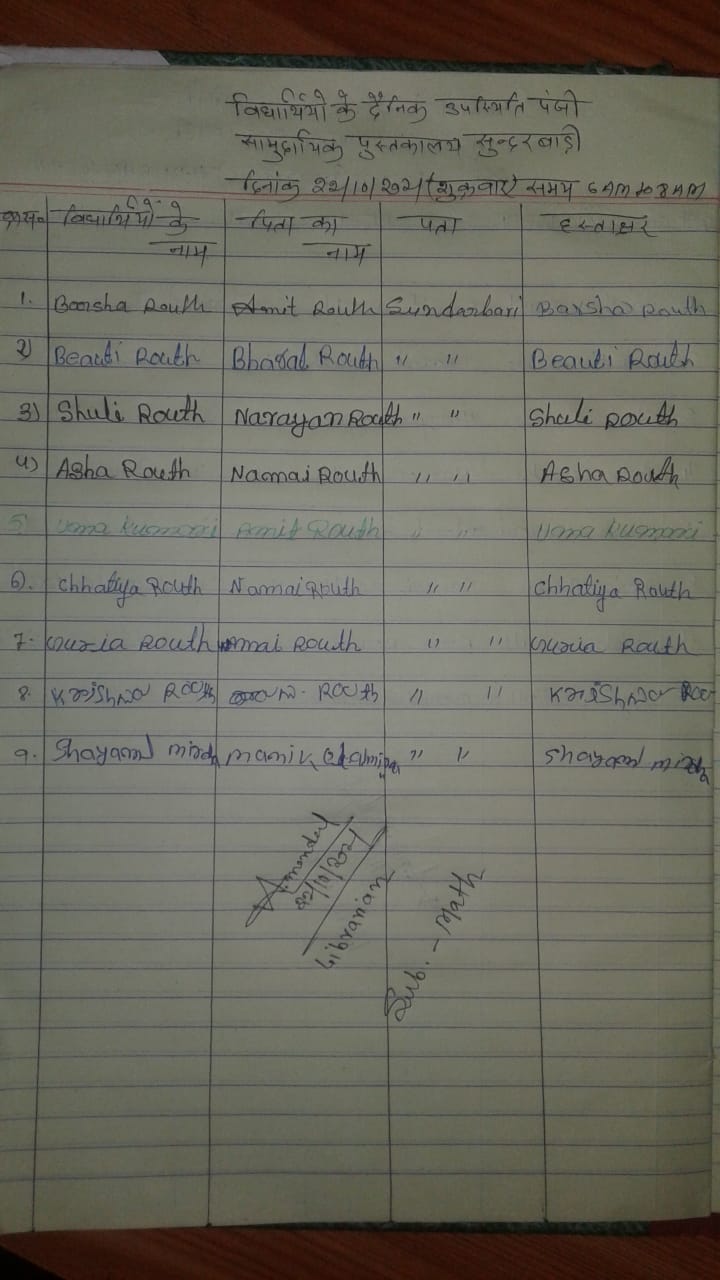 विद्यार्थियों के दैनिक उपस्थिति पंजी
सामुदायिक पुस्तकालय सुन्दरबाड़ी
दिनांक 22/10/2021 (शुक्रवार) समय 6 AM to 8 AM
विद्यार्थियों के नाम पिता का नाम पता हस्ताक्षर
1. Barsha Routh Amit Routh Sundarbari Barsha Routh
2) Beauti Routh Bharat Routh " " Beauti Routh
3) Shuli Routh Narayan Routh " " Shuli Routh
4) Asha Routh Namai Routh " " Asha Routh
5. Uma Kumari Amit Routh " " Uma Kumari
6). Chhatiya Routh Namai Routh " " Chhatiya Routh
7. Routh Routh " " Routh
8. Krishna Routh Routh " " Krishna
9. Shayam " " Shayam
22/10/2021
Librarian
Sub. - Math